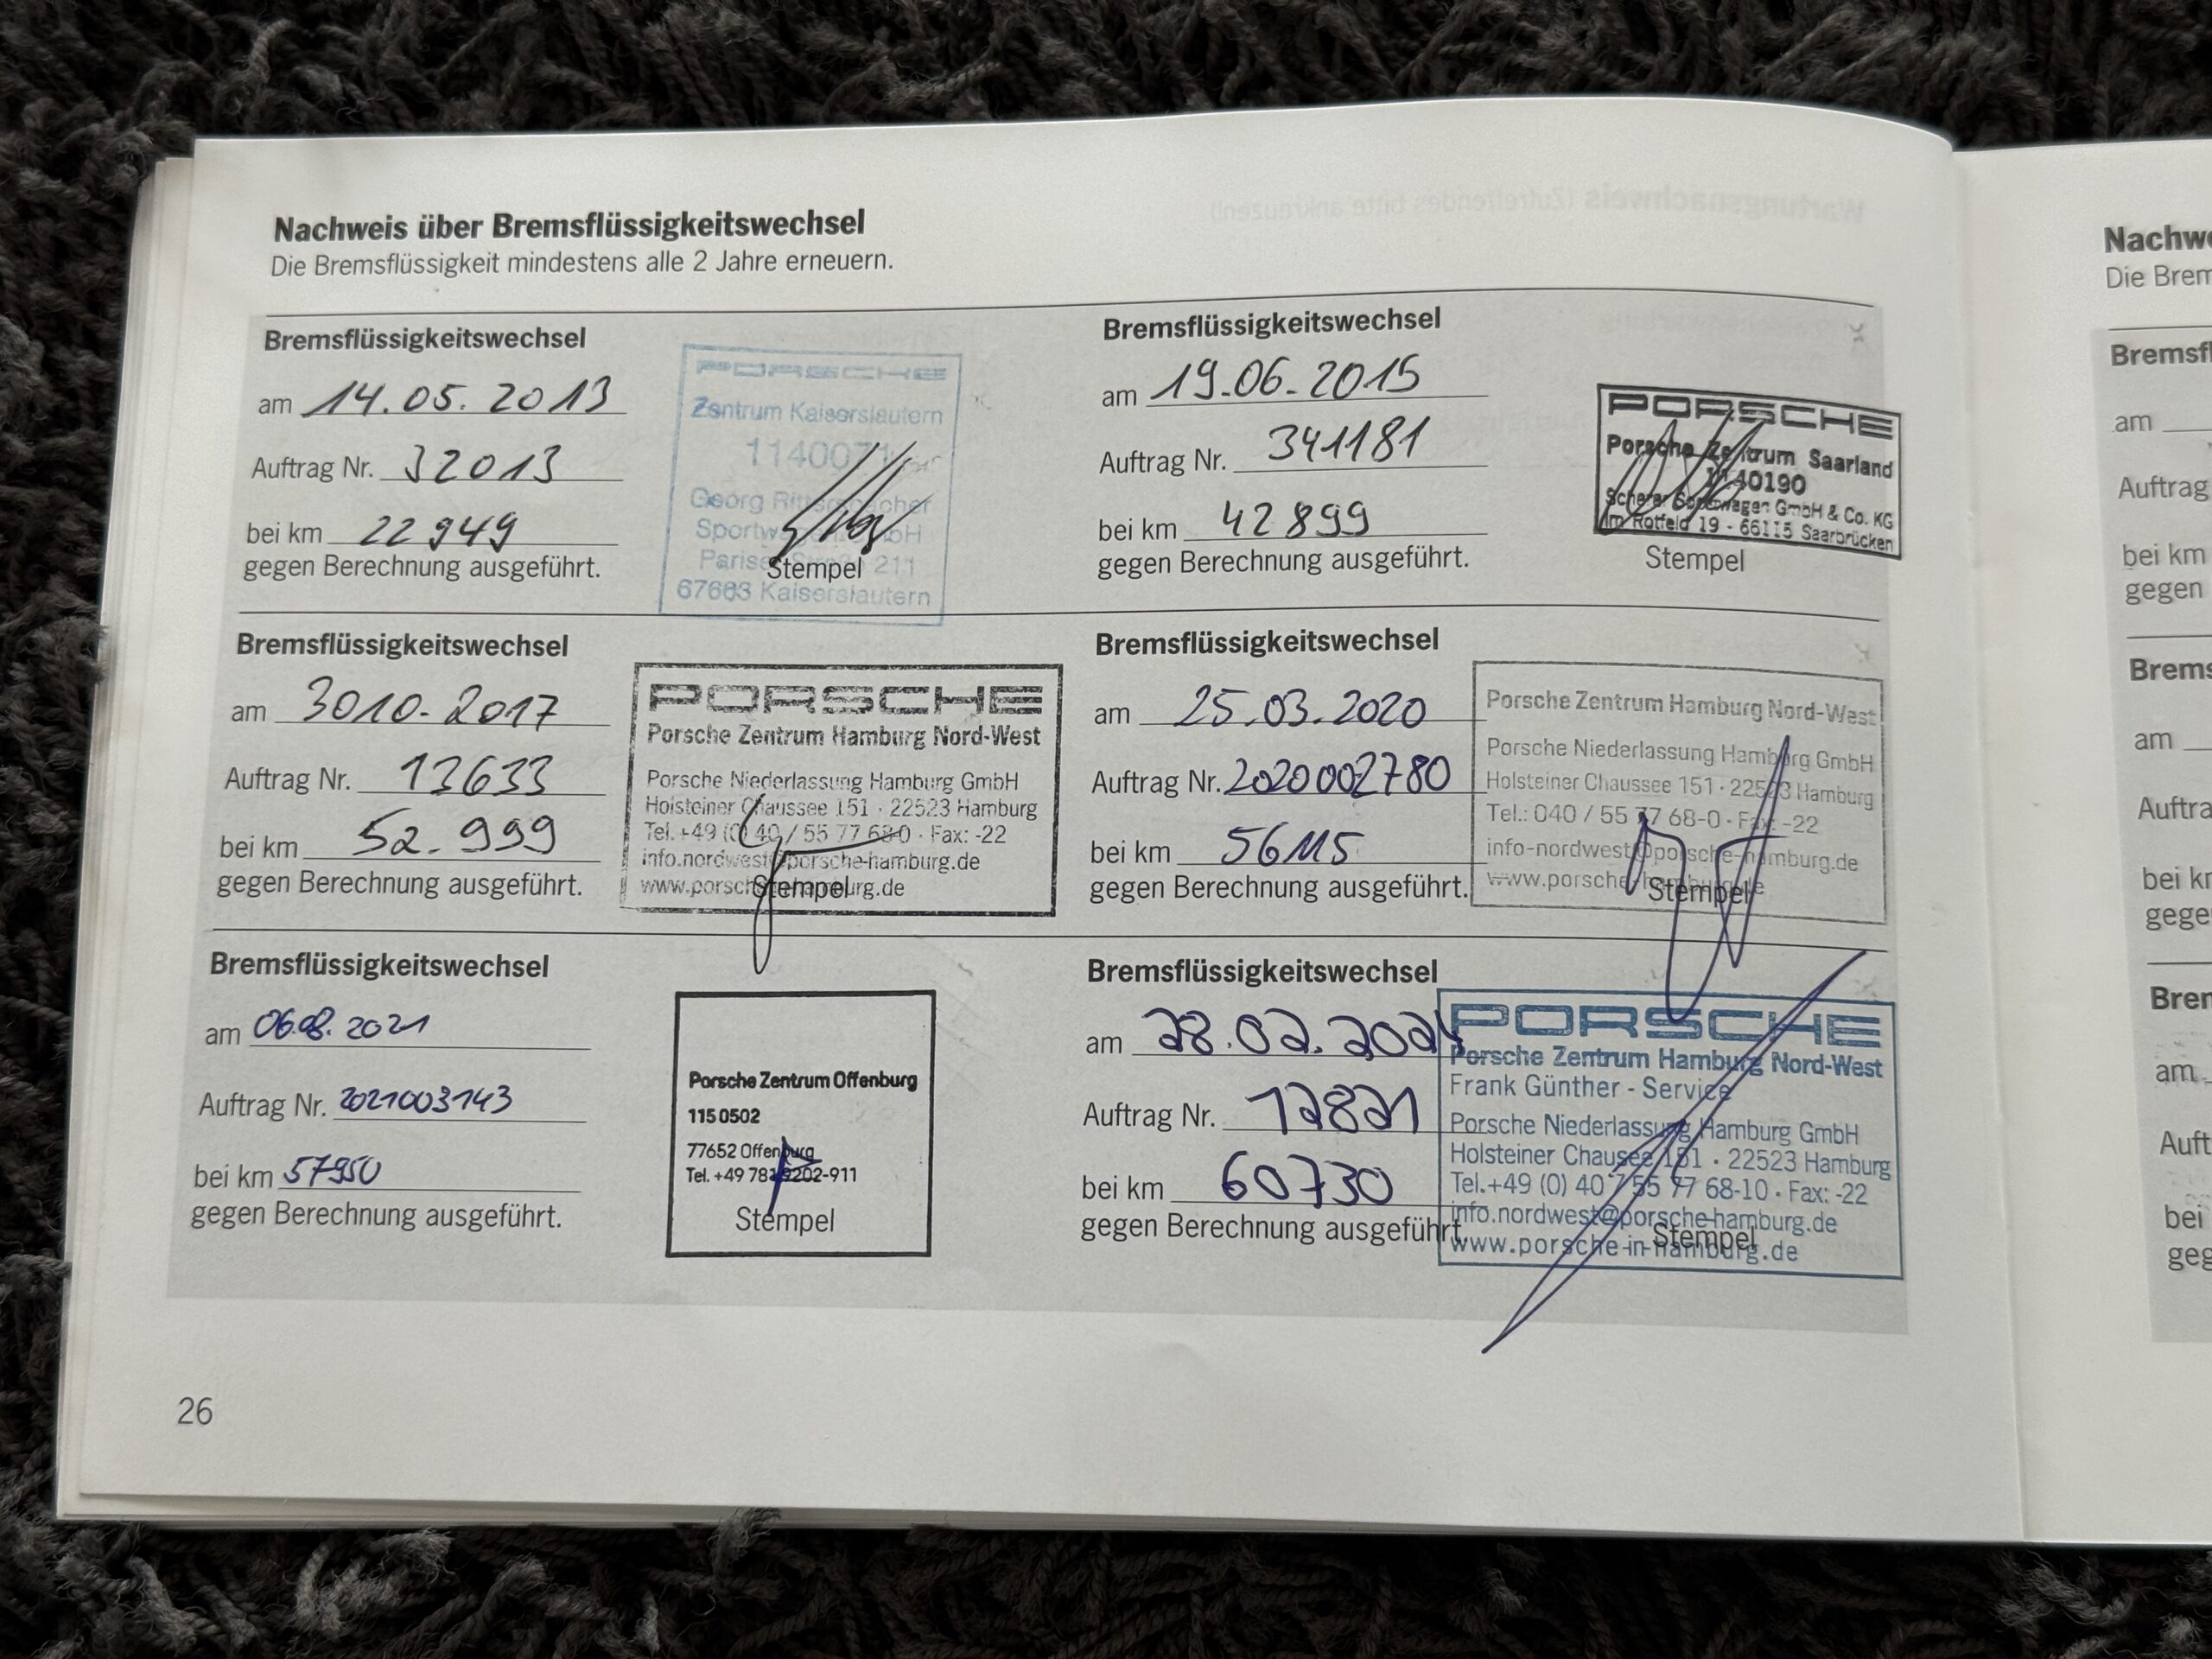 Nachweis über Bremsflüssigkeitswechsel
Die Bremsflüssigkeit mindestens alle 2 Jahre erneuern.
Bremsflüssigkeitswechsel
am 14.05.2013
Auftrag Nr. 32013
bei km 22949
gegen Berechnung ausgeführt.
PORSCHE
Zentrum Kaiserslautern
Georg
67663 Kaiserslautern
Stempel
Bremsflüssigkeitswechsel
am 19.06.2015
Auftrag Nr. 341181
bei km 42899
gegen Berechnung ausgeführt.
PORSCHE
Porsche Zentrum Saarland
1140190
GmbH & Co. KG
Im Rotfeld 19 - 66115 Saarbrücken
Stempel
Bremsflüssigkeitswechsel
am 3010.2017
Auftrag Nr. 13633
bei km 52.999
gegen Berechnung ausgeführt.
PORSCHE
Porsche Zentrum Hamburg Nord-West
Porsche Niederlassung Hamburg GmbH
Holsteiner Chaussee 151 · 22523 Hamburg
Tel. +49 (0) 40 / 55 77 68-0 · Fax: -22
info.nordwest@porsche-hamburg.de
Stempel
Bremsflüssigkeitswechsel
am 25.03.2020
Auftrag Nr. 2020002780
bei km 56115
gegen Berechnung ausgeführt.
Porsche Zentrum Hamburg Nord-West
Porsche Niederlassung Hamburg GmbH
Holsteiner Chaussee 151 · 22523 Hamburg
Tel.: 040 / 55 77 68-0 · Fax: -22
info-nordwest@porsche-hamburg.de
www.porsche-hamburg.de
Stempel
Bremsflüssigkeitswechsel
am 06.08.2021
Auftrag Nr. 2021003143
bei km 57950
gegen Berechnung ausgeführt.
Porsche Zentrum Offenburg
115 0502
77652 Offenburg
Tel. +49 781 9202-911
Stempel
Bremsflüssigkeitswechsel
am 28.02.2024
Auftrag Nr. 12821
bei km 60730
gegen Berechnung ausgeführt.
PORSCHE
Porsche Zentrum Hamburg Nord-West
Frank Günther - Service
Porsche Niederlassung Hamburg GmbH
Holsteiner Chaussee 151 · 22523 Hamburg
Tel.+49 (0) 40 / 55 77 68-10 · Fax: -22
info.nordwest@porsche-hamburg.de
www.porsche-in-hamburg.de
Stempel
26
Die
am
Auftrag
bei km
gegen
am
bei
am
bei